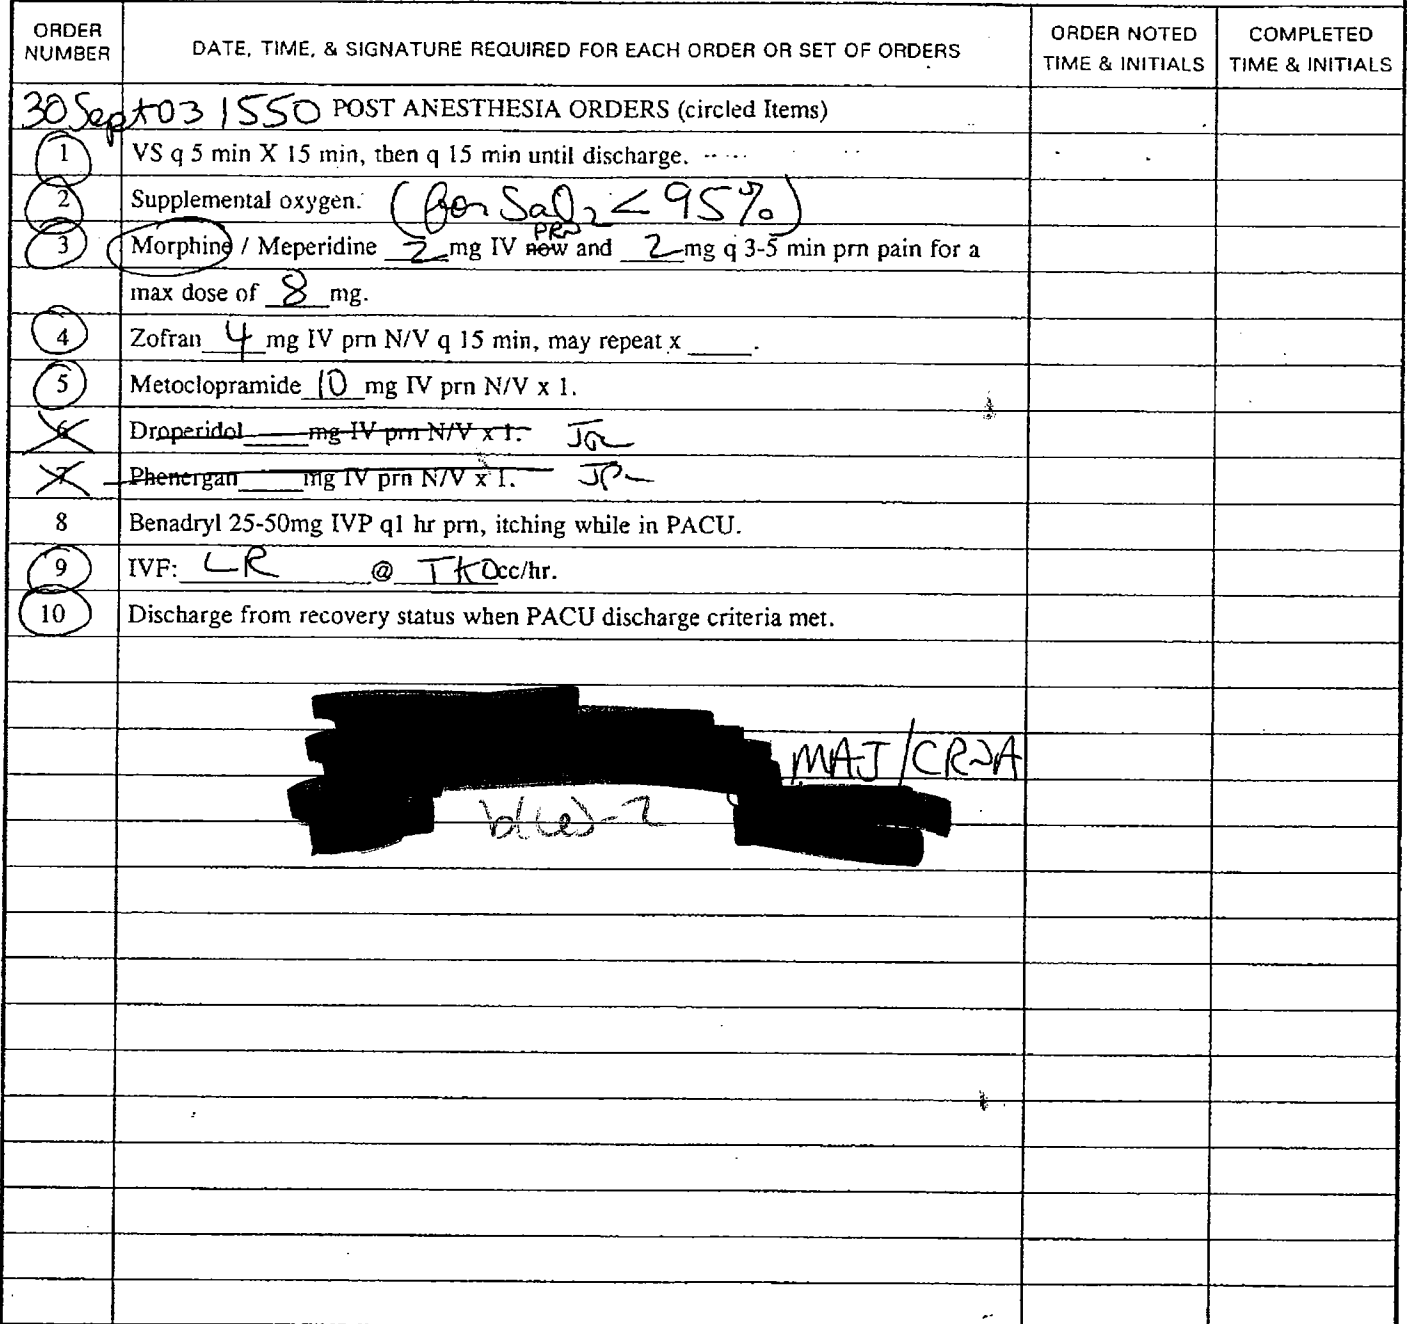 ORDER NUMBER DATE, TIME, & SIGNATURE REQUIRED FOR EACH ORDER OR SET OF ORDERS ORDER NOTED TIME & INITIALS COMPLETED TIME & INITIALS
30 Sept 03 1550 POST ANESTHESIA ORDERS (circled Items)
1 VS q 5 min X 15 min, then q 15 min until discharge.
2 Supplemental oxygen. (for SaO2 < 95%)
PRN
3 Morphine / Meperidine 2 mg IV now and 2 mg q 3-5 min prn pain for a
max dose of 8 mg.
4 Zofran 4 mg IV prn N/V q 15 min, may repeat x ____.
5 Metoclopramide 10 mg IV prn N/V x 1.
6 Droperidol ____ mg IV prn N/V x 1.
7 Phenergan ____ mg IV prn N/V x 1.
8 Benadryl 25-50mg IVP q1 hr prn, itching while in PACU.
9 IVF: LR @ TKO cc/hr.
10 Discharge from recovery status when PACU discharge criteria met.
MAJ/CRNA
b(6)-2